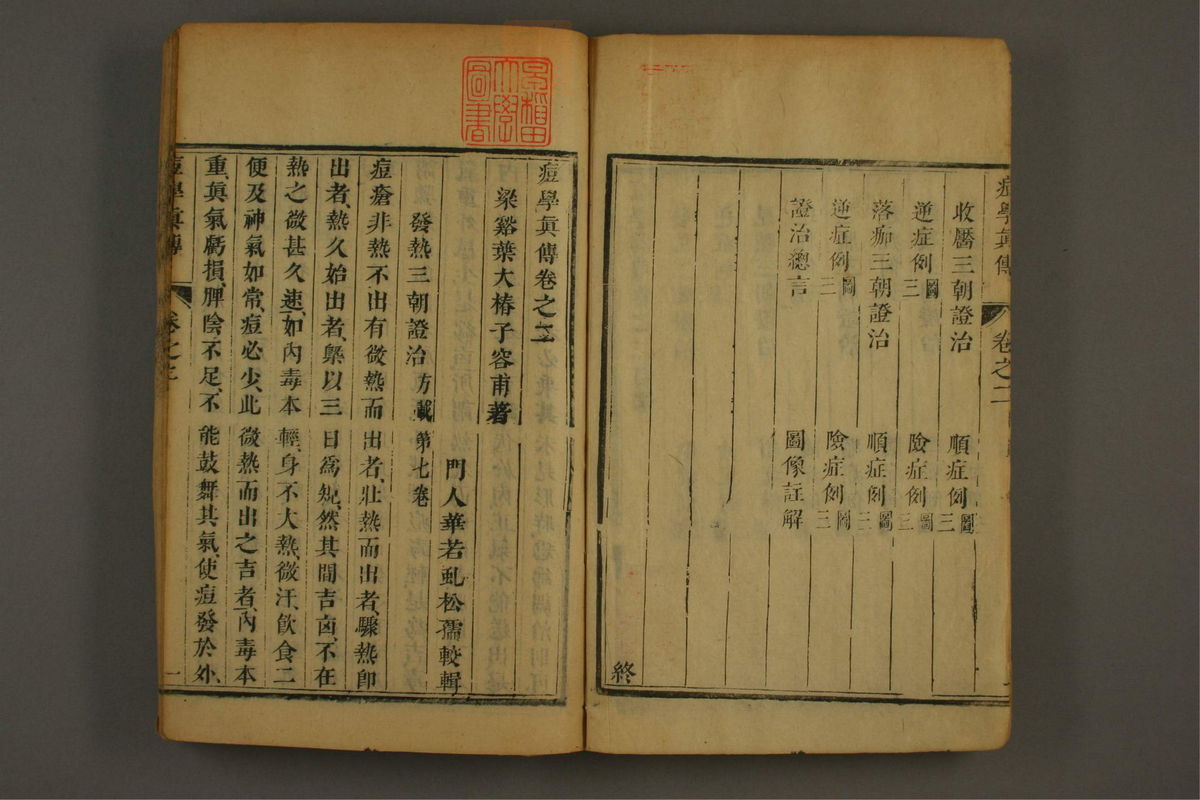 痘學眞傳
卷之二
收靨三朝證治
順症例三圖
逆症例三圖
險症例三圖
落痂三朝證治
順症例三圖
逆症例三圖
險症例三圖
證治總言
圖像註解
終
早稲田大學圖書
痘學眞傳卷之二
梁谿葉大椿子容甫著
門人華若虬松孺較輯
發熱三朝證治方載第七卷
痘瘡非熱不出有微熱而出者、壯熱而出者、驟熱卽
出者、熱久始出者、槩以三日爲規、然其間吉凶、不在
熱之微甚久速、如內毒本輕、身不大熱、微汗、飮食二
便及神氣如常、痘必少、此微熱而出之吉者、內毒本
重、眞氣虧損、脾陰不足、不能鼓舞其氣、使痘發於外、
痘學眞傳
卷之二
一